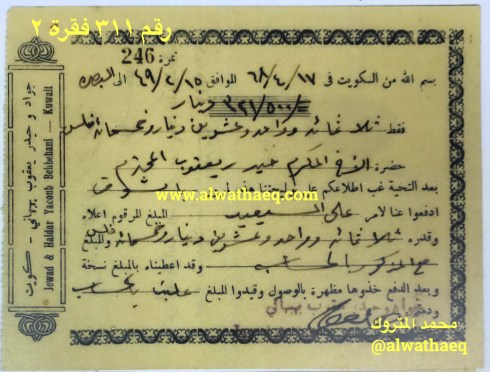 رقم ٣١١ فقرة ٢
نمرة 246
بسم الله من الكويت في ١٧/٤/٦٨ الموافق ١٥/٢/٤٩ الى البصرة
٣٢١/٥٠٠ دينار
فقط ثلاثمائة وواحد وعشرين دينار وخمسمائة افلس
حضرة الاخ المكرم حيدر يعقوب المحترم
بعد التحية غب اطلاعكم على
www.alwathaeq.com
ادفعوا عنا لامر على المبلغ المرقوم اعلاه
وقدره ثلاثمائة وواحد وعشرين دينار وخمسمائة فلس
والمبلغ مع المذكور بالحساب وقد اعطيناه بالمبلغ نسخة
وبعد الدفع خذوها مظهرة بالوصول وقيدوا المبلغ علينا بالحساب
ودمتم
محمد المتروك
@alwathaeq
جواد و حيدر يعقوب بهبهاني - كويت
Jewad & Haidar Yacoub Behbehani — Kuwait